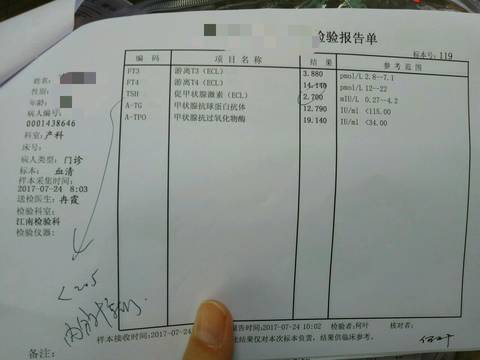 检验报告单
标本号: 119
编 码 项 目 名 称 结 果 参 考 范 围
FT3 游离T3(ECL) 3.880 pmol/L 2.8--7.1
FT4 游离T4(ECL) 14.140 pmol/L 12--22
TSH 促甲状腺激素(ECL) 2.700 mIU/L 0.27--4.2
A-TG 甲状腺抗球蛋白抗体 12.790 IU/ml <115.00
A-TPO 甲状腺抗过氧化物酶 19.140 IU/ml <34.00
姓名:
性别:
年龄:
病人编号:
0001438646
科室: 产科
床号:
病人类型: 门诊
标本: 血清
样本采集时间:
2017-07-24 8:03
送检医生: 冉霞
检验科室:
江南检验科
检验仪器:
<2.5
样本接收时间:2017-07-24 报告时间:2017-07-24 10:02 检验者:何叶 核对者:
此结果仅对本次标本负责, 结果供临床参考。
备注: